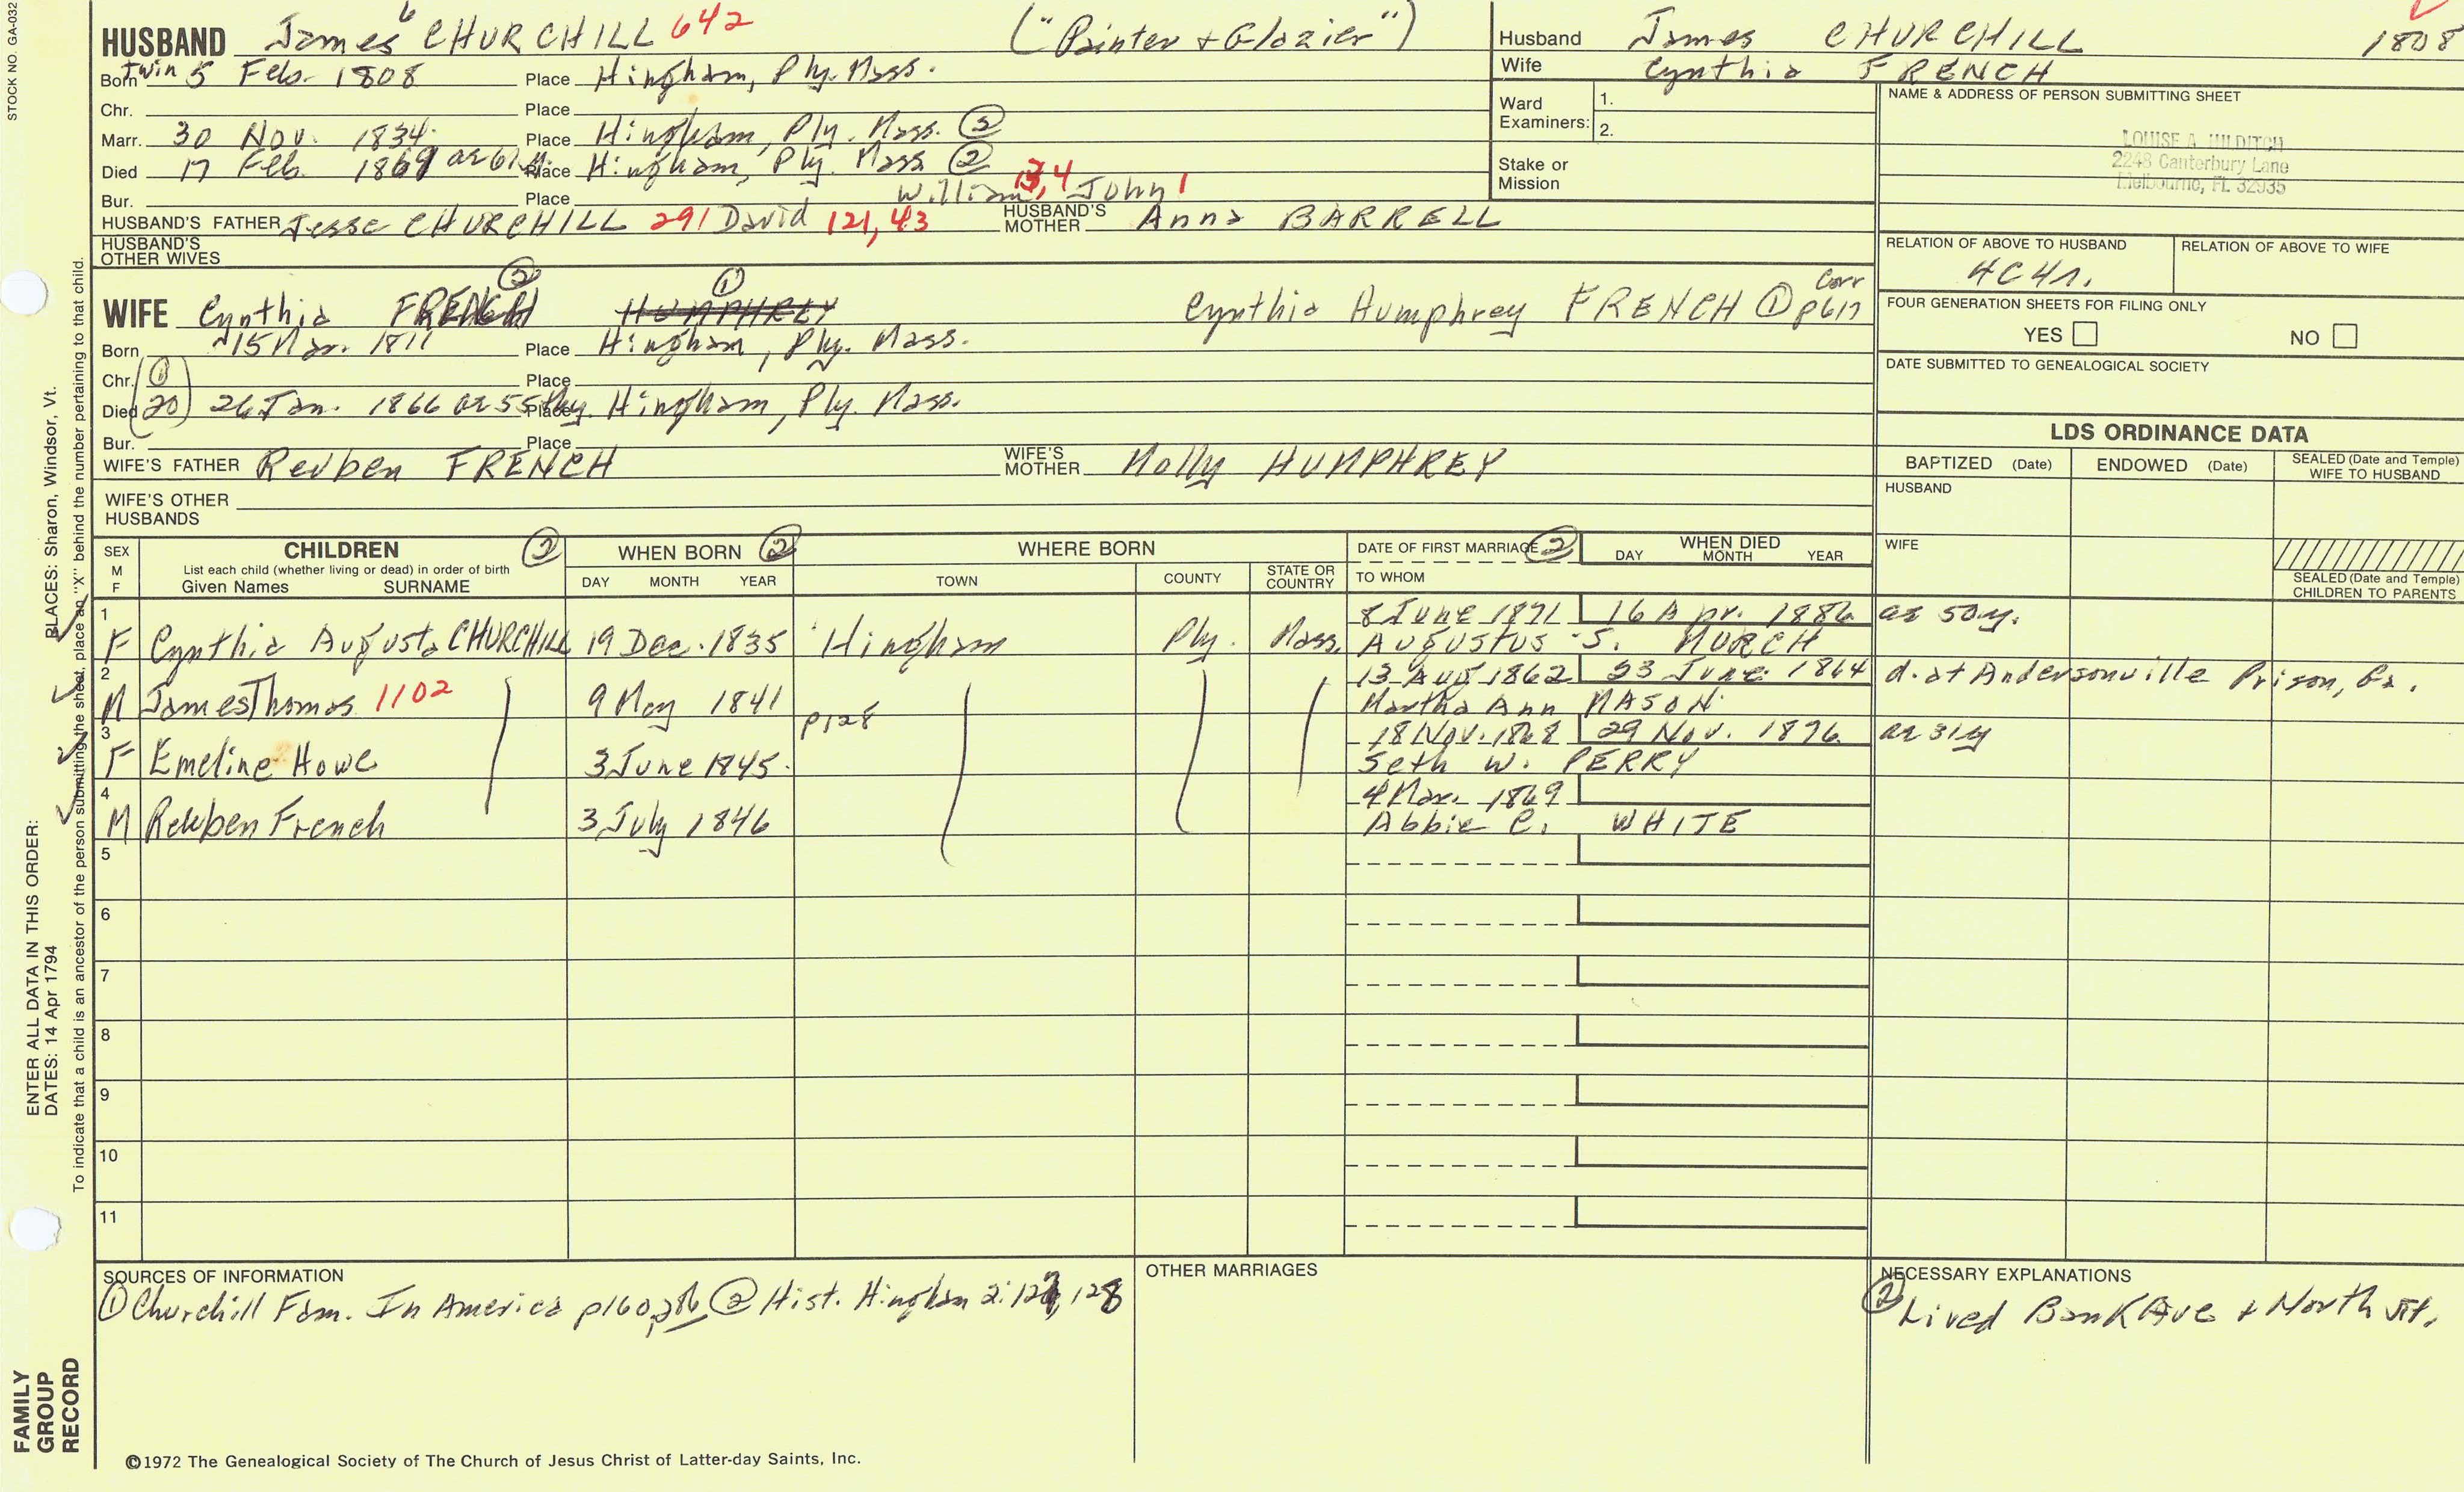 STOCK NO. GA-032
HUSBAND James 6 CHURCHILL 642 ("Painter + Glazier")
Born Twin 5 Feb. 1808 Place Hingham, Ply. Mass.
Chr. Place
Marr. 30 Nov. 1834. Place Hingham, Ply. Mass. ②
Died 17 Feb. 1869 ae 61 Place Hingham, Ply. Mass ②
Bur. Place William 3,4 John 1
HUSBAND'S FATHER Jesse CHURCHILL 291 David 121, 43 HUSBAND'S MOTHER Anna BARRELL
HUSBAND'S OTHER WIVES
Husband James CHURCHILL 1808
Wife Cynthia FRENCH
Ward Examiners: 1.
2.
Stake or Mission
NAME & ADDRESS OF PERSON SUBMITTING SHEET
LOUISE A. HILDITCH
2248 Canterbury Lane
Melbourne, FL 32935
RELATION OF ABOVE TO HUSBAND RELATION OF ABOVE TO WIFE
4C4r.
FOUR GENERATION SHEETS FOR FILING ONLY
YES NO
DATE SUBMITTED TO GENEALOGICAL SOCIETY
WIFE Cynthia FRENCH ② HUMPHREY ① Cynthia Humphrey FRENCH ① Corr p617
Born 15 Mar. 1811 Place Hingham, Ply. Mass.
Chr. ① Place
Died 20 26 Jan. 1866 ae 55 Place Hingham, Ply. Mass.
Bur. Place
WIFE'S FATHER Reuben FRENCH WIFE'S MOTHER Molly HUMPHREY
WIFE'S OTHER HUSBANDS
LDS ORDINANCE DATA
BAPTIZED (Date) ENDOWED (Date) SEALED (Date and Temple) WIFE TO HUSBAND
HUSBAND
WIFE
SEALED (Date and Temple) CHILDREN TO PARENTS
SEX M F CHILDREN ② List each child (whether living or dead) in order of birth Given Names SURNAME
WHEN BORN ② DAY MONTH YEAR
WHERE BORN TOWN COUNTY STATE OR COUNTRY
DATE OF FIRST MARRIAGE ② TO WHOM
WHEN DIED DAY MONTH YEAR
1 8 June 1871 16 Apr. 1886 ae 50y.
F Cynthia Augusta CHURCHILL 19 Dec. 1835 Hingham Ply. Mass. AUGUSTUS S. MURCH
2 13 Aug 1862 23 June 1864 d. at Andersonville Prison, Ga.
M James Thomas 1102 9 May 1841 p128 Martha Ann MASON
3 18 Nov. 1868 29 Nov. 1876 ae 31y
F Emeline Howe 3 June 1845. Seth W. PERRY
4 4 Mar. 1869
M Reuben French 3 July 1846 Abbie C. WHITE
5
6
7
8
9
10
11
SOURCES OF INFORMATION
① Churchill Fam. In America p160, ② Hist. Hingham 2: 128
OTHER MARRIAGES
NECESSARY EXPLANATIONS
② Lived Bank Ave + North St.
©1972 The Genealogical Society of The Church of Jesus Christ of Latter-day Saints, Inc.
FAMILY
GROUP
RECORD
ENTER ALL DATA IN THIS ORDER:
DATES: 14 Apr 1794 PLACES: Sharon, Windsor, Vt.
To indicate that a child is an ancestor of the person submitting the sheet, place an "X" behind the number pertaining to that child.